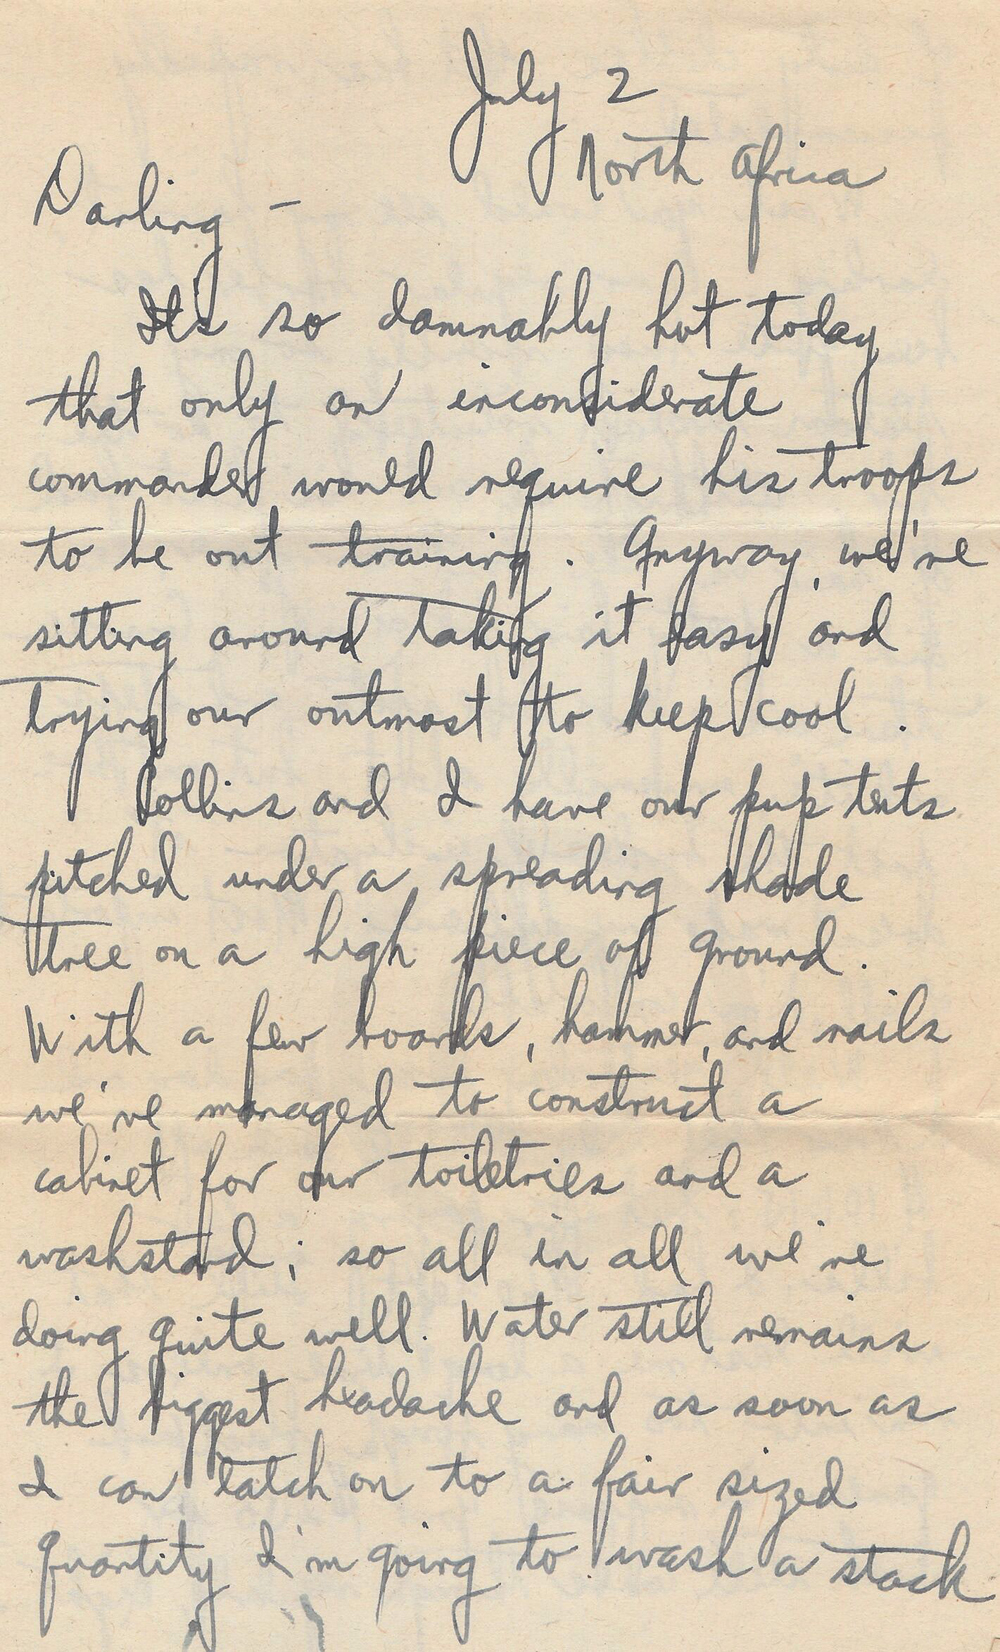 July 2
North Africa
Darling -
It's so damnably hot today
that only an inconsiderate
commander would require his troops
to be out training. Anyway, we're
sitting around taking it easy and
trying our outmost to keep cool.
Collins and I have our pup tents
pitched under a spreading shade
tree on a high piece of ground.
With a few boards, hammer, and nails
we've managed to construct a
cabinet for our toiletries and a
washstand; so all in all we're
doing quite well. Water still remains
the biggest headache and as soon as
I can latch on to a fair sized
quantity I'm going to wash a stack